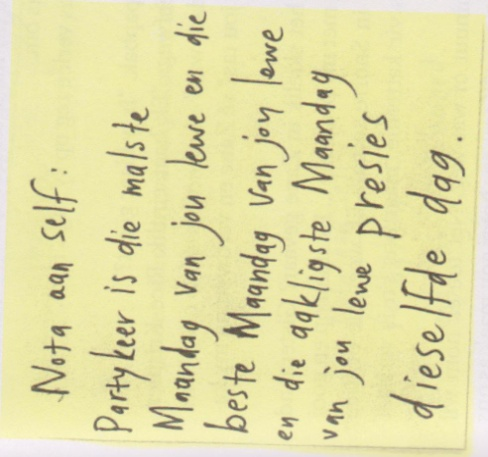 Nota aan self:
Partykeer is die malste
Maandag van jou lewe en die
beste Maandag van jou lewe
en die aakligste Maandag
van jou lewe presies
dieselfde dag.